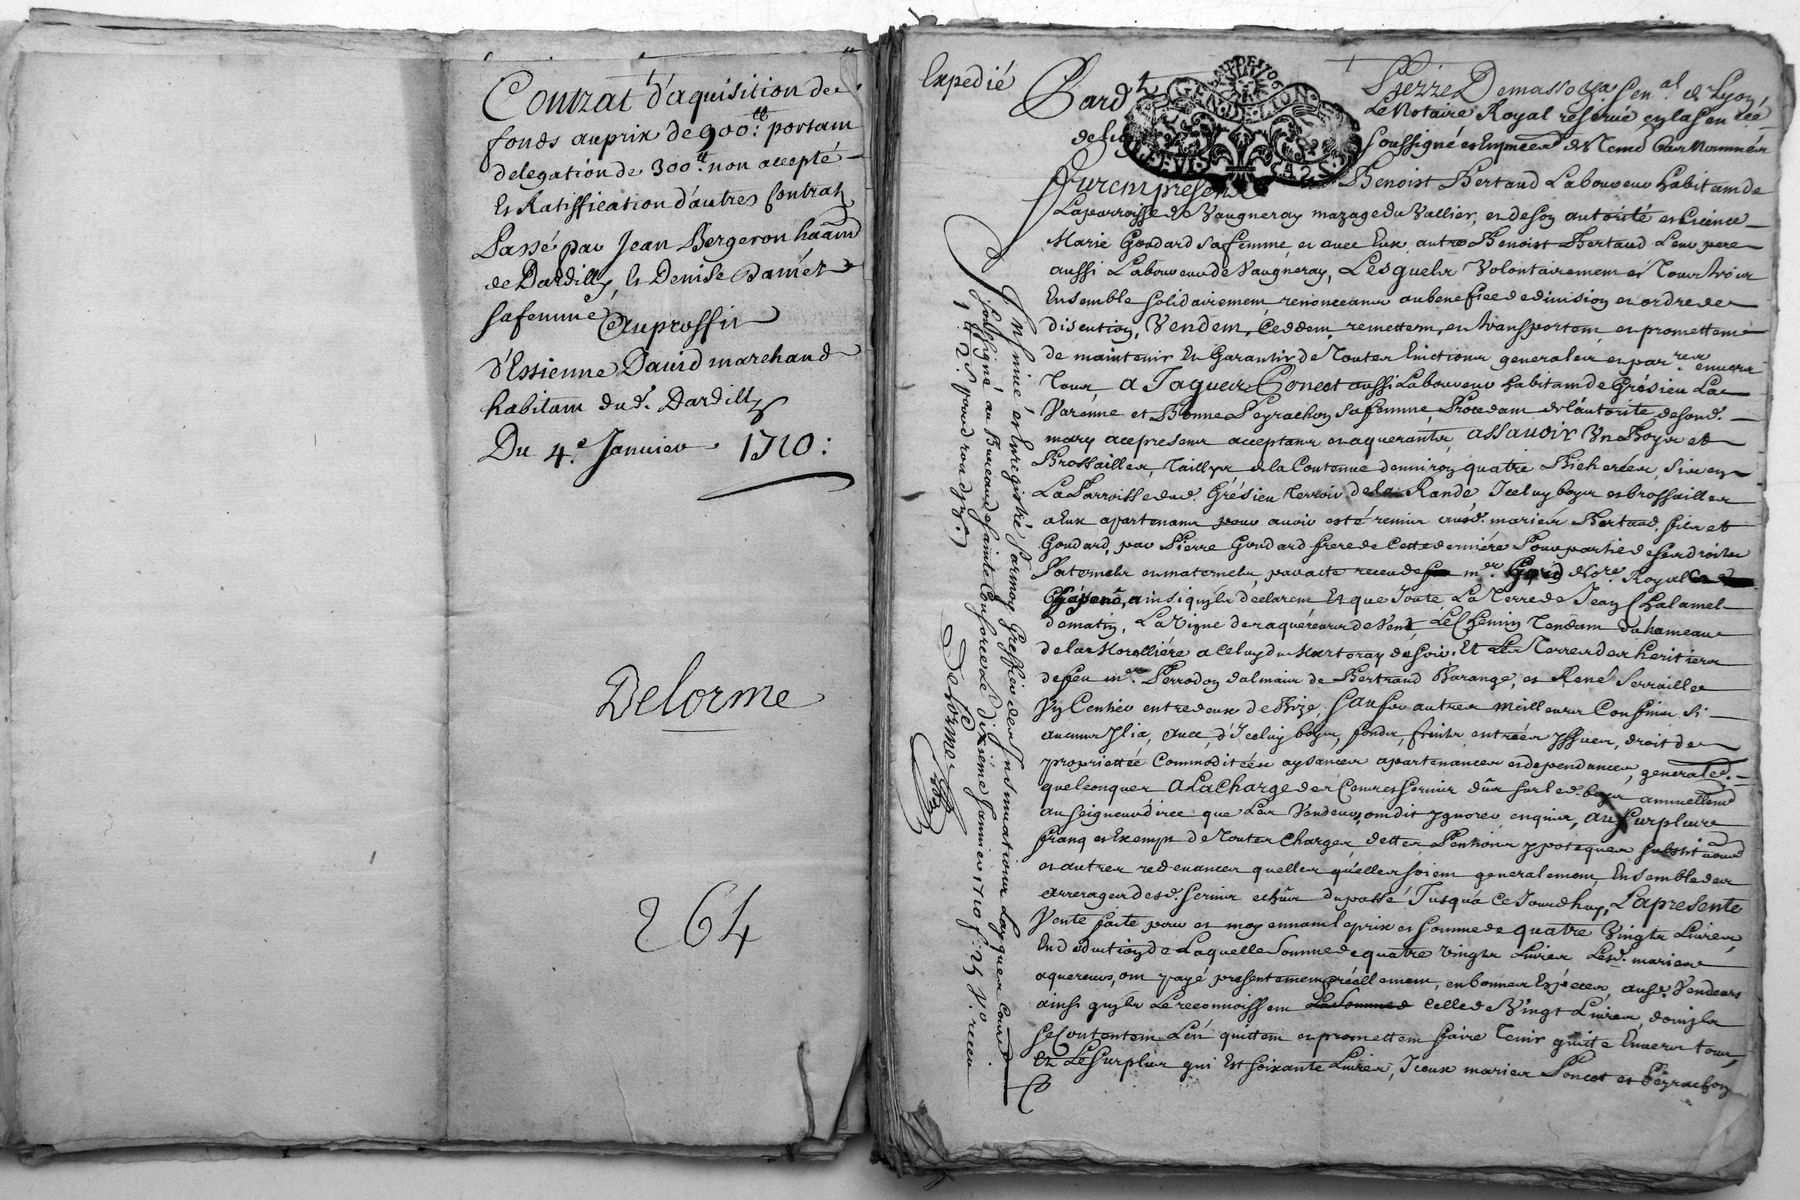 Contrat d'aquisition de
fonds au prix de 900.tt portam
delegation de 300tt non accepté
Et Ratiffication d'autres Contrat
Passé par Jean Bergeron haănt
de Dardilly, Et Denise Damet
safemme Auproffit
d'Estienne David marchand
habitam dud. Dardilly
Du 4.e Janvier 1710:
Delorme
264
Expedié
Pard.t
Pierre De
de Lyon,
Le Notaire Royal reservé en la
soussigné
Furem presens Benoist Bertaud Laboureur habitam de
Laparroisse de Vaugneray mazage du Vallier, et de soy autorité et Licience
Marie Goudard safemme et avec Eux autre Benoist Bertaud Leur pere
aussi Laboureur de Vaugneray, Lesquels Volontairement et Tous trois
Ensemble solidairement renonceant au benefice de division et ordre de
discution, Vendem, Ceddem, remettem, et transportem et promettem
de maintenir Et Garantir de Toutes Evictions generales et par.res envers
Tous, a Jaques Poncet aussi Laboureur habitam de Grésieu La
Varenne et Bonne Peyrachon safemme Procedam de l'autorité de sond.
mary acepresens acceptans et aquerants, assavoir Un Boys et
Brossailles, Taillys de la Contenue denviron quatre Bicherées, sis en
La Parroisse dud. Grésieu Terroir de la Rande, Iceluy boys et brossailles
a Eux apartenans pour avoir esté remis ausd. mariés Bertaud, fils et
Goudard, par Pierre Goudard frere de Cette derniére Pour partie de ses droits
Paternels et maternels, par acte receu de m.re No.re Royal
ainsi quyls declarem Et que Joute La Terre de Jean Chalamel
de matin, La Vigne des aquereurs de Vent, Le Chemin Tendam du hameau
de la Morelliére a Celuy du Martoray de soir, Et Les Terres des heritiers
de feu m.re Perrodon de Bertrand Barange, et René Serraille
Un sentier entredeux de Bize, sauf ses autres meilleurs Confins si
aucuns Jl ia, avec d'Iceluy boys, fonds, fruits, entrées yssues, droit de
proprietté Commoditées aysances apartenances et dependances, generales
quelconques ALaCharge des Cens et servis dûs sur led. boys annuellemt
au seigneur direc que Les Vendeurs, omdit ygnorer, enquis, au surplus
franq et Exempt de Toutes Charges, dettes Pensions ypoteques
et autres redevances quelles qu'elles soiem generalement, Ensemble des
arrerages desd. servis echûs du passé Jusqu'à Ce Jourdhuy, Lapresente
Vente faite pour et moyennant leprix et sommede quatre Vingts Livres,
En deduction de Laquelle somme de quatre vingts Livres Lesd. mariés
aquereurs, om payé presentement réellement, en bonnes Espèces, ausd. Vendeurs
ainsi quyls Le reconnoissem La somme de Celle de Vingt Livres, dont yls
se Contentem Les quittem et promettem faire Tenir quitte Envers tous,
Et Le surplus qui Est soixante Livres, Iceux mariés Poncet et Peyrachon
Insinué et Enregistré Par moy Greffier des Insinuations Layques
soussigné au Bureau de sainte Consorce Le dixiéme Janvier 1710 f.o 25 V.o receu
Delorme